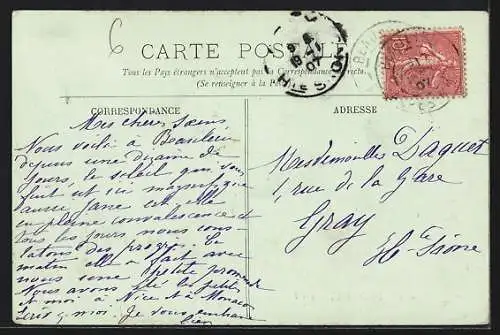 6
CARTE POSTALE
Tous les Pays étrangers n'acceptent pas la Correspondance au recto.
(Se renseigner à la Poste)
CORRESPONDANCE
ADRESSE
Mes chères sœurs
Nous voilà à Beaulieu
depuis une dizaine de
jours, le soleil que
fait est ici magnifique
aussi Jane est elle
en pleine convalescence et
tous les jours nous cons-
tatons des progr. Ce
matin elle a fait avec
nous une petite promenade
Nous avons été les petites
et moi à Nice et à Monaco
Mesdemoiselles Daguet
1, rue de la Gare
Gray
Hte Saône
Hte SAONE
07